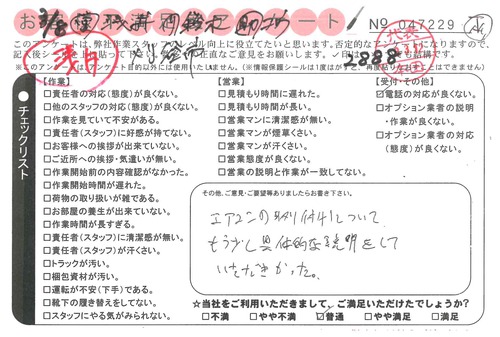 № 047229
このアンケートは、弊社作業スタッフのレベル向上に役立てたいと思います。否定的な
✓印はいくつでも結構です。
8888
チェックリスト
【作業】
□責任者の対応(態度)が良くない。
□他のスタッフの対応(態度)が良くない。
□作業を見ていて不安がある。
□責任者(スタッフ)に好感が持てない。
□お客様への挨拶が出来ていない。
□ご近所への挨拶・気遣いが無い。
□作業開始前の内容確認がなかった。
□作業開始時間が遅れた。
□荷物の取り扱いが雑である。
□お部屋の養生が出来ていない。
□作業時間が長すぎる。
□責任者(スタッフ)に清潔感が無い。
□責任者(スタッフ)が汗くさい。
□トラックが汚い。
□梱包資材が汚い。
□運転が不安(下手)である。
□靴下の履き替えをしてない。
□スタッフにやる気がみられない。
【営業】
□見積もり時間に遅れた。
□見積もり時間が長い。
□営業マンに清潔感が無い。
□営業マンが煙草くさい。
□営業マンが汗くさい。
□営業態度が良くない。
□営業の説明と作業が一致してない。
【受付・その他】
□電話の対応が良くない。
□オプション業者の説明
・作業が良くない。
□オプション業者の対応
(態度)が良くない。
その他、ご意見・ご要望等ありましたらお書き下さい。
エアコンの取り付けについて
もう少し具体的な説明をして
いただきたかった。
☆当社をご利用いただきまして、ご満足いただけたでしょうか?
□不満 □やや不満 ☑普通 □やや満足 □満足